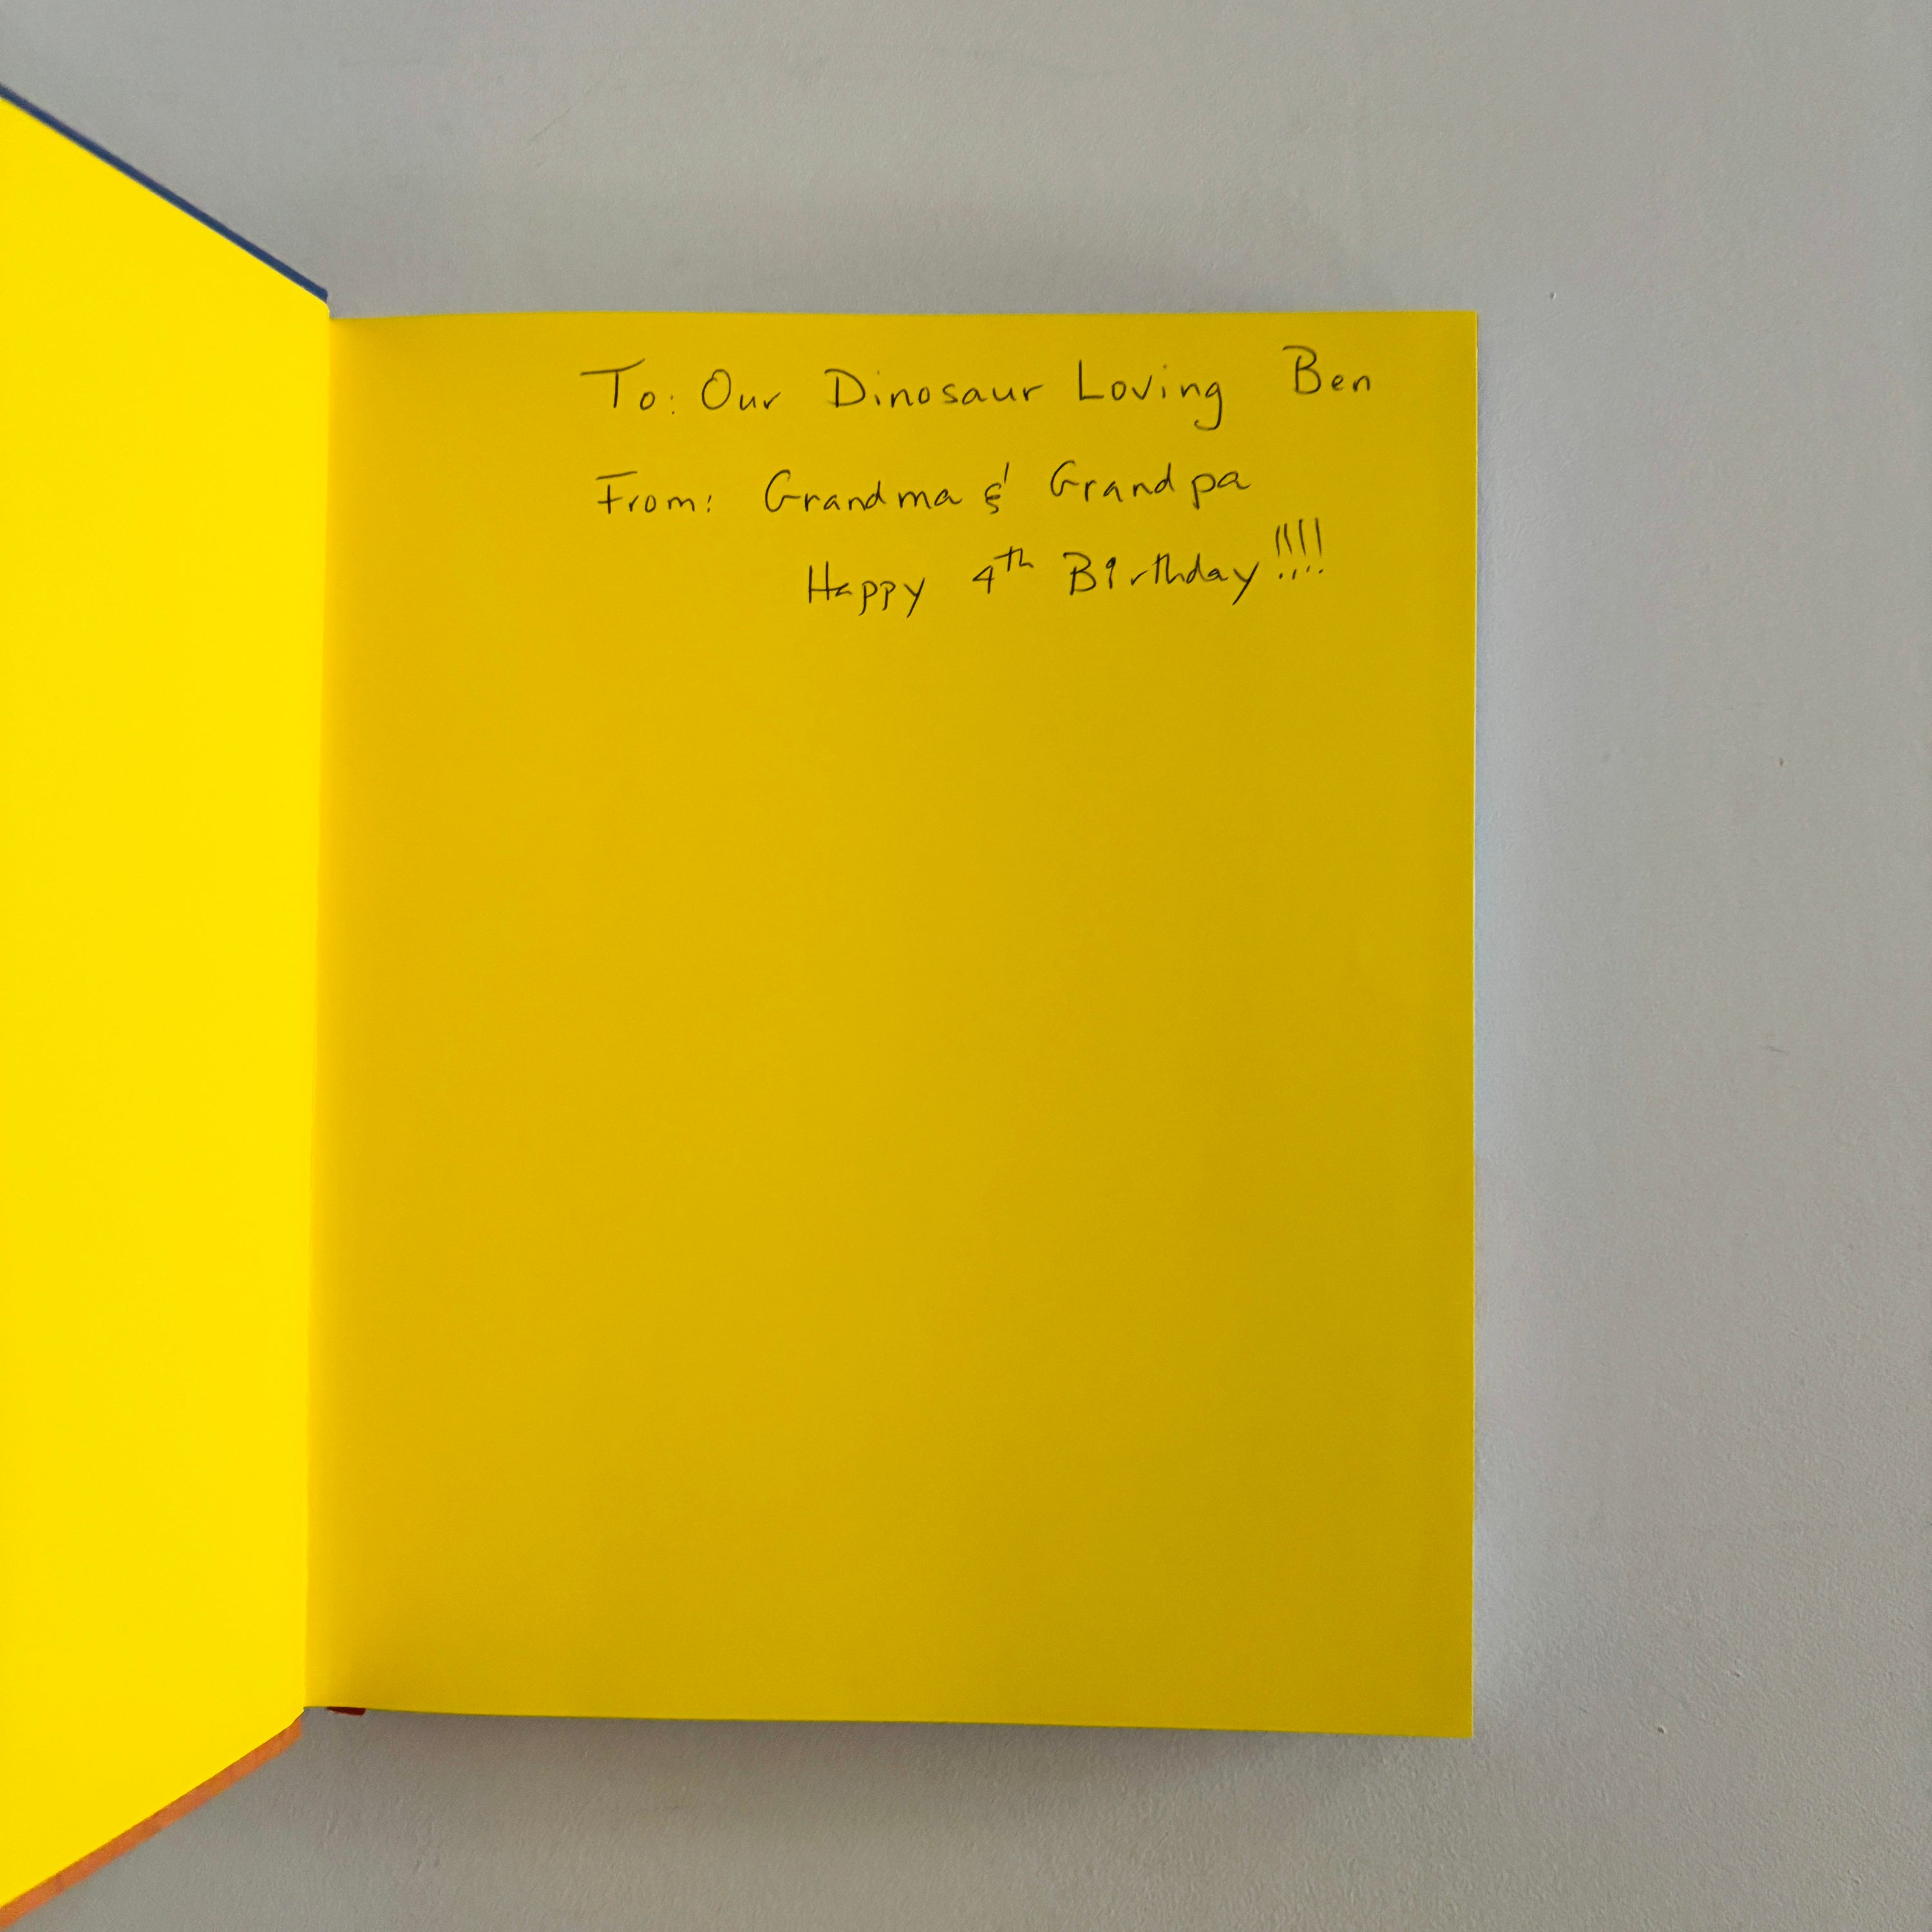 To: Our Dinosaur Loving Ben
From: Grandma & Grandpa
Happy 4th Birthday!!!!